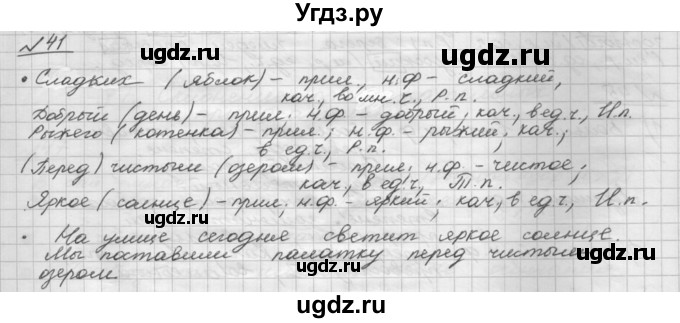 Угдз.ру
ugdz.ru ugdz.ru
№ 41
• Сладких (яблок) – прил., н.ф – сладкий,
кач., во мн.ч., Р.п.
Добрый (день) – прил. н.ф – добрый, кач., в ед.ч., И.п.
Рыжего (котенка) – прил., н.ф. – рыжий, кач.,
в ед.ч., Р.п.
(Перед) чистым (озером) – прил. н.ф. – чистое,
кач., в ед.ч., Т.п.
Яркое (солнце) – прил., н.ф. – яркий, кач., в ед.ч., И.п.
• На улице сегодня светит яркое солнце.
Мы поставили палатку перед чистым
озером.
ugdz.ru
ugdz.ru
ugdz.ru
ugdz.ru
ugdz.ru